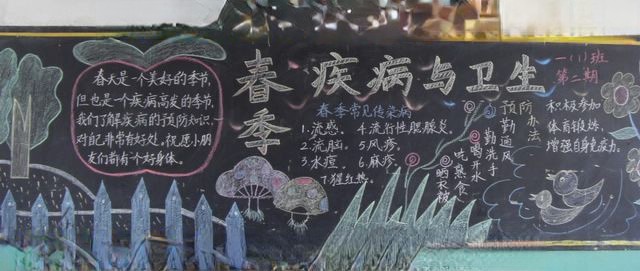 春季
疾病与卫生
一(1)班
第二期
春天是一个美好的季节,
但也是一个疾病高发的季节,
我们了解疾病的预防知识,
对自己非常有好处。祝愿小朋
友们都有个好身体。
春季常见传染病
1.流感、
2.流脑。
3.水痘、
4.流行性腮腺炎。
5.风疹。
6.麻疹。
7.猩红热。
预防办法
勤通风
勤洗手
喝开水
吃熟食
晒衣被
积极参加
体育锻炼,
增强自身免疫力。